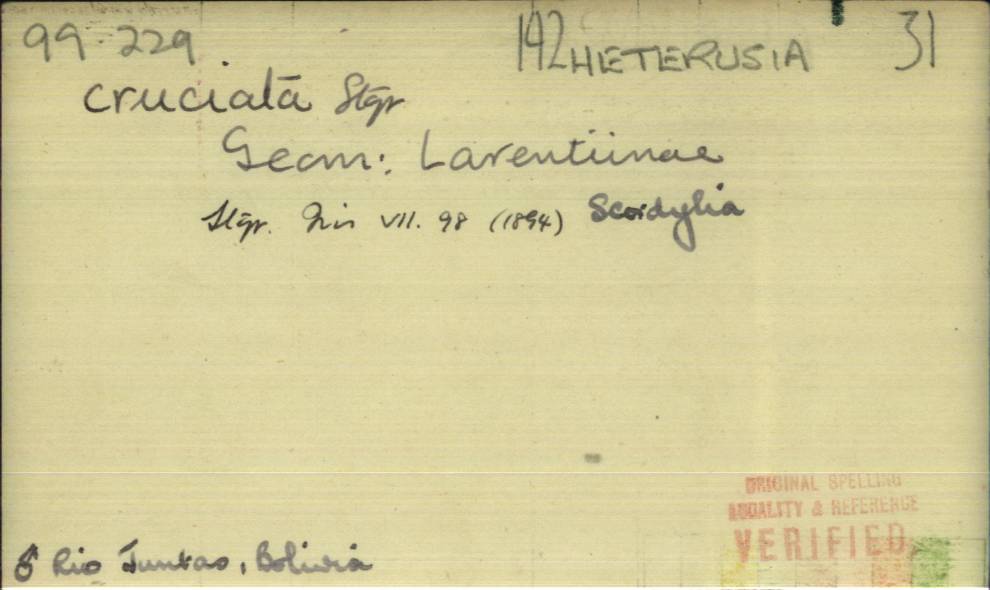 99-229 142 HETERUSIA 31
cruciata Stgr
Geom: Larentiinae
Stgr. Iris VII. 98 (1894) Scordylia
ORIGINAL SPELLING
LOCALITY & REFERENCE
VERIFIED
♂ Rio Juntas, Bolivia